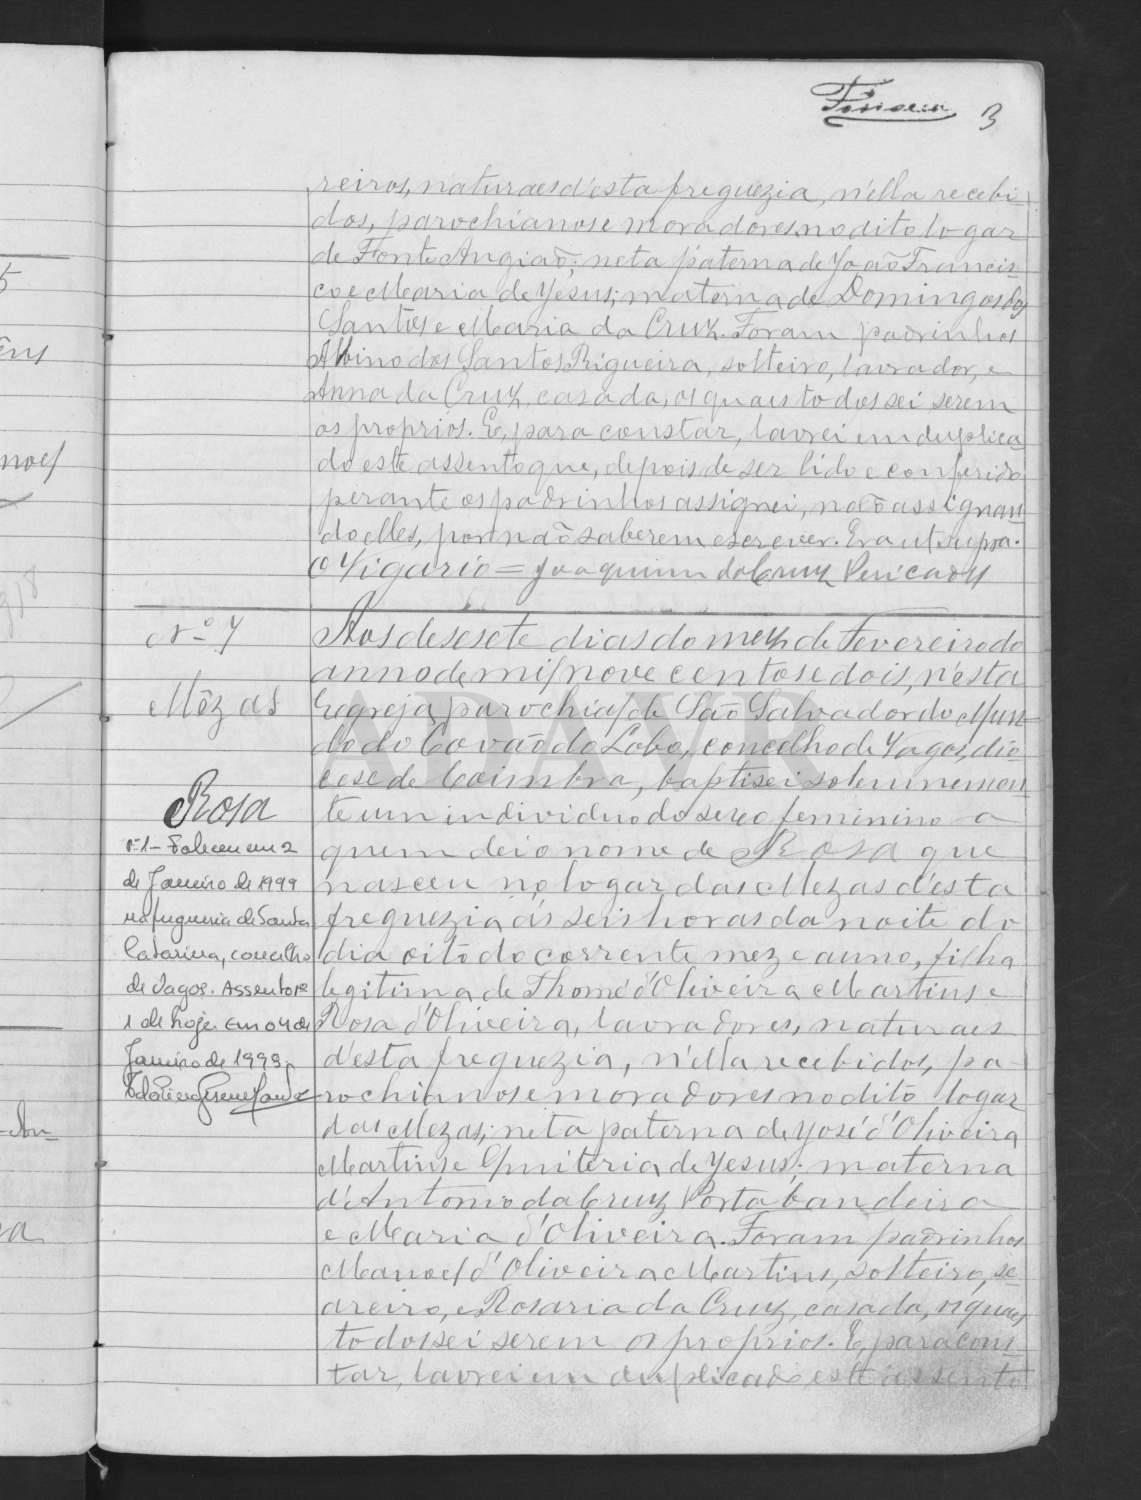 3
reiros, naturaes d'esta freguezia, n'ella recebi-
dos, parochianos e moradores no dito logar
de Fonte Angião; neta paterna de João Francis-
co e Maria de Jesus; materna de Domingos dos
Santos e Maria da Cruz. Foram padrinhos
Albino dos Santos Rigueira, solteiro, lavrador, e
Anna da Cruz, casada, os quaes todos sei serem
os proprios. E, para constar, lavrei em duplica
do este assento que, depois de ser lido e conferido
perante os padrinhos assignei, não assignan-
do elles, por não saberem escrever. Era ut supra.
O Vigario = Joaquim da Cruz Pericão
Nº 7
Mêzas
Rosa
Nº 1 - Faleceu em 2
de Janeiro de 1999
na freguesia de Santa
Catarina, concelho
de Vagos. Assento nº
1 de hoje. Em 04 de
Janeiro de 1999
Aos desesete dias do mez de Fevereiro do
anno de mil nove centos e dois, n'esta
Egreja parochial de São Salvador do Mun-
do do Covão do Lobo, concelho de Vagos, dio-
cese de Coimbra, baptisei solemnemen-
te um individuo do sexo feminino a
quem dei o nome de Rosa que
nasceu no logar das Mezas d'esta
freguezia ás seis horas da noite do
dia oito do corrente mez e anno, filha
legitima de Thomé d'Oliveira Martins e
Rosa d'Oliveira, lavradores, naturaes
d'esta freguezia, n'ella recebidos, pa-
rochianos e moradores no dito logar
das Mezas; neta paterna de José d'Oliveira
Martins e Quiteria de Jesus; materna
d'Antonio da Cruz Porta bandeira
e Maria d'Oliveira. Foram padrinhos
Manoel d'Oliveira Martins, solteiro, se-
areiro, e Rosaria da Cruz, casada, os quaes
todos sei serem os proprios. E, para cons-
tar, lavrei em duplicado este assento
ADAVR